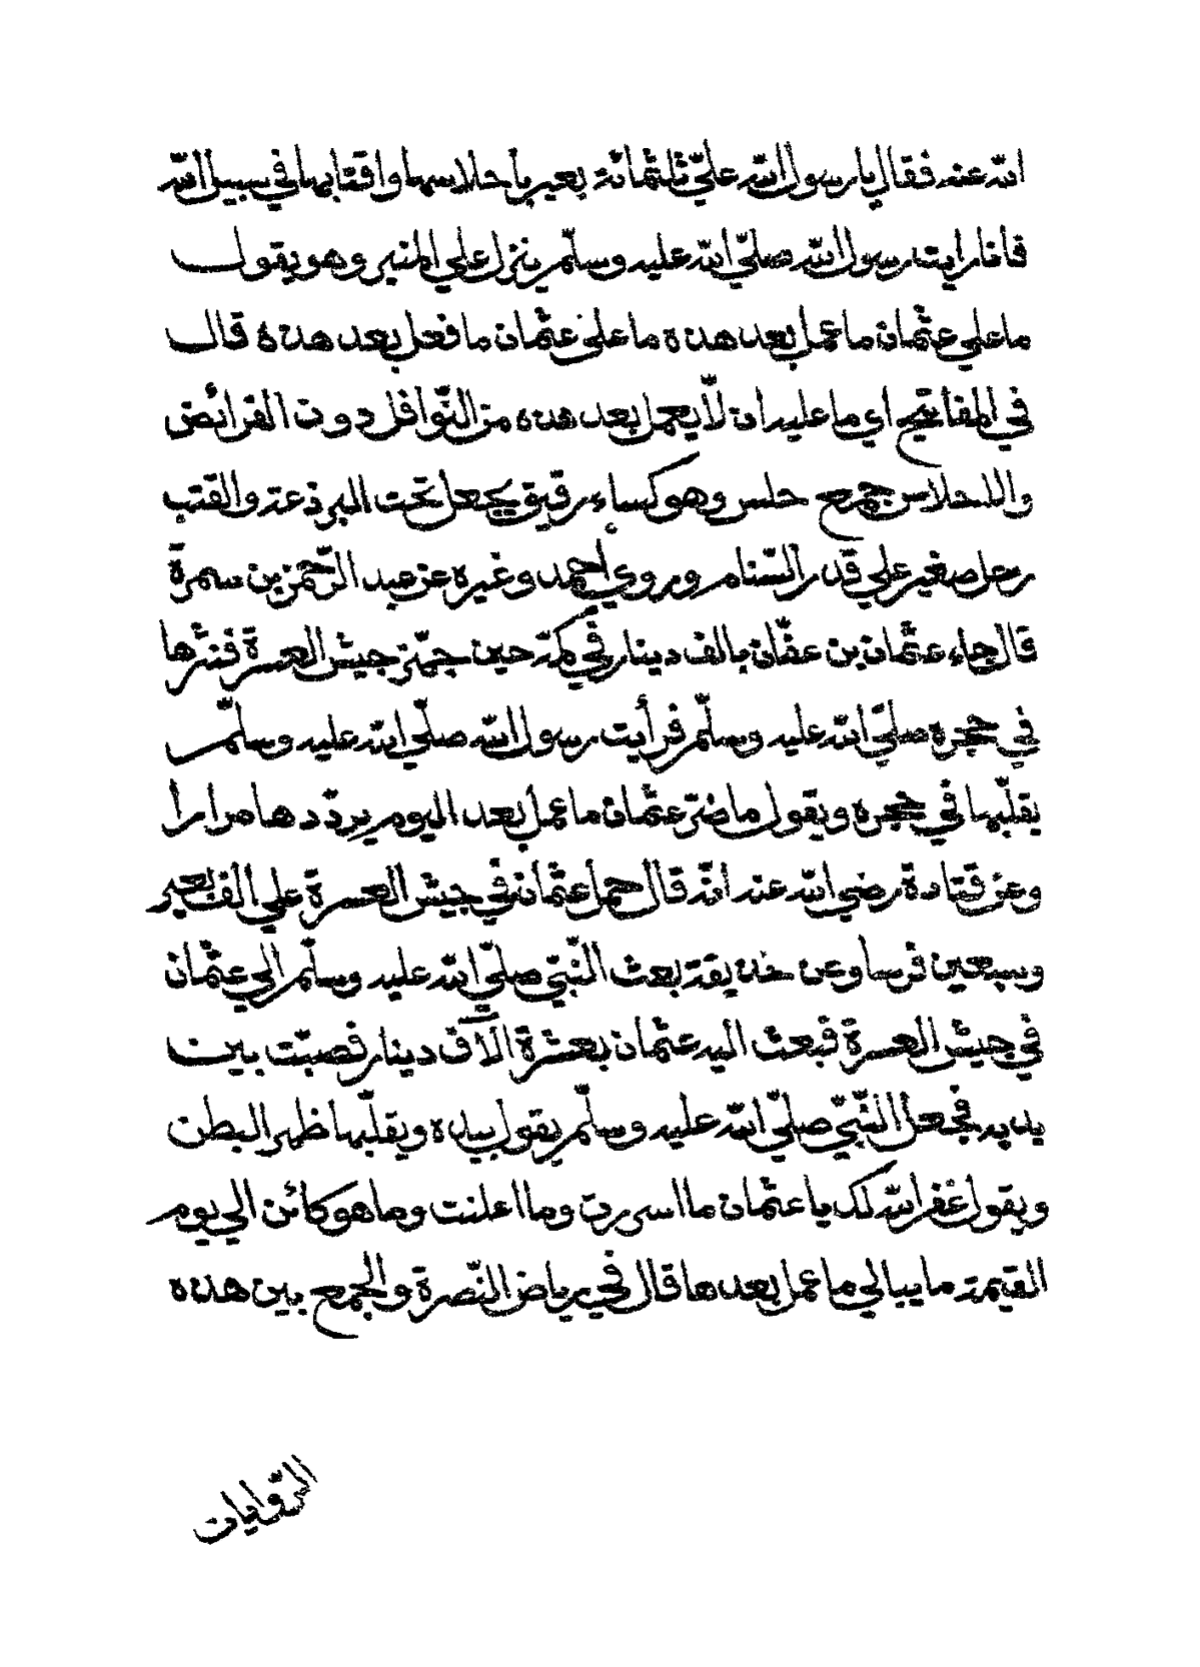 الله عنه فقال يا رسول الله عليّ ثلثمائة بعير بأحلاسها واقتابها في سبيل الله
فانا رايت رسول الله صلّي الله عليه وسلّم ينزل علي المنبر وهو يقول
ما علي عثمان ما عمل بعد هذه ما علي عثمان ما فعل بعد هذه قال
في المفاتيح اي ما عليه ان لّا يعمل بعد هذه من النّوافل دون الفرائض
والاحلاس جمع حلس وهو كساء رقيق يجعل تحت البرذعة والقتب
رحل صغير علي قدر السّنام وروي أحمد وغيره عن عبد الرّحمن بن سمرة
قال جاء عثمان بن عفّان بالف دينار في كمّه حين جهّز جيش العسرة فنثرها
في حجره صلّي الله عليه وسلّم فرأيت رسول الله صلّي الله عليه وسلّم
يقلّبها في حجره ويقول ما ضرّ عثمان ما عمل بعد اليوم يردّدها مرارا
وعن قتادة رضي الله عنه انّه قال حمل عثمان في جيش العسرة علي الف بعير
وسبعين فرسا وعن حذيفة بعث النّبيّ صلّي الله عليه وسلّم الي عثمان
في جيش العسرة فبعث اليه عثمان بعشرة آلاف دينار فصبّت بين
يديه فجعل النّبيّ صلّي الله عليه وسلّم يقول بيده ويقلّبها ظهر البطن
ويقول غفر الله لك يا عثمان ما اسررت وما اعلنت وما هو كائن الي يوم
القيمة ما يبالي ما عمل بعدها قال في رياض النّصرة والجمع بين هذه
الرّوايات